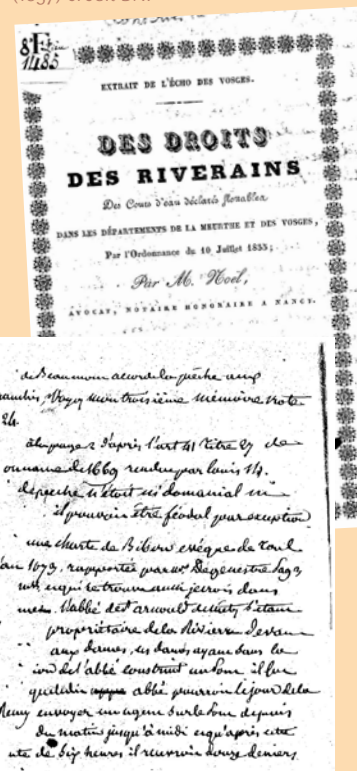 8°F
11185
EXTRAIT DE L'ÉCHO DES VOSGES.
DES DROITS
DES RIVERAINS
Des Cours d'eau déclarés flottables
DANS LES DÉPARTEMENTS DE LA MEURTHE ET DES VOSGES,
Par l'Ordonnance du 10 Juillet 1835;
Par M. Noël,
AVOCAT, NOTAIRE HONORAIRE A NANCY.
de Beaumont accorde la pêche aux
Voyez mon troisième mémoire note
24.
à la page 2 d'après l'art 41 titre 27 de
de 1669 rendue par louis 14.
n'était ni domanial ni
il pouvoit être féodal par exception
une charte de Bibon evêque de toul
1073, rapportée par
qui se trouve aussi dans
L'abbé de St arnould de metz étant
propriétaire de la Rivière devant
aux dames, les dames ayant dans la
de l'abbé construit un pont il fut
que ledit abbé pourroit le jour de la
Remy envoyer un agent sur le pont depuis
du matin jusqu'à midi et qu'après cette
de six heures il recevroit douze deniers